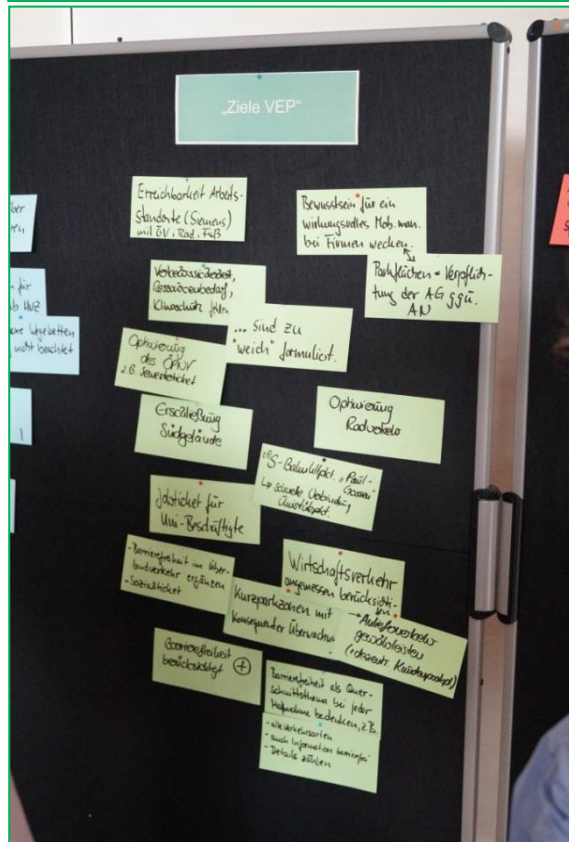 „Ziele VEP“
Erreichbarkeit Arbeits-
standorte (Siemens)
mit ÖV, Rad, Fuß
Bewusstsein für ein
wirkungsvolles Mob.man.
bei Firmen wecken.
Parkflächen = Verpflich-
tung der AG ggü.
AN
Verkehrssicherheit,
Ressourcenbedarf,
Klimaschutz fehlen
... sind zu
"weich" formuliert.
Optimierung
des ÖPNV
z.B. Semesterticket
Erschließung
Südgelände
Optimierung
Radverkehr
"Paul-
Gossen"
↳ schnelle Verbindung
Jobticket für
Uni-Beschäftigte
- Barrierefreiheit im Über-
landverkehr ergänzen
- Sozialticket
Wirtschaftsverkehr
angemessen berücksichti-
Kurzparkzonen mit
konsequenter Überwachung
gewährleisten
Barrierefreiheit
berücksichtigt +
Barrierefreiheit als Quer-
schnittsthema bei jeder
Maßnahme bedenken, z.B.
- alle Verkehrsarten
- auch Information barrierefrei
- Details zählen
nicht beachtet